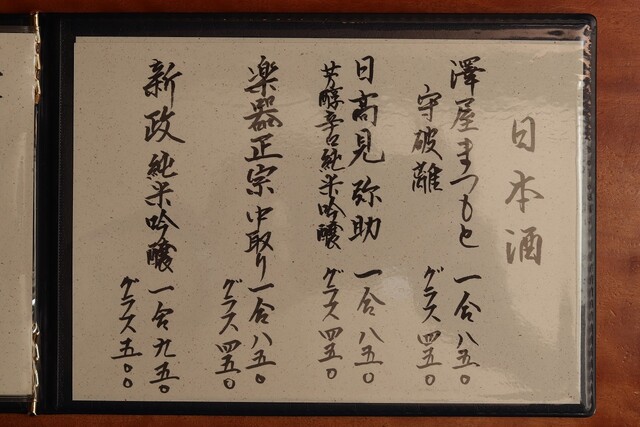 日本酒
澤屋まつもと
守破離
一合 八五〇
グラス 四五〇
日高見 弥助
芳醇辛口純米吟醸
一合 八五〇
グラス 四五〇
楽器正宗 中取り
一合 八五〇
グラス 四五〇
新政 純米吟醸
一合 九五〇
グラス 五〇〇